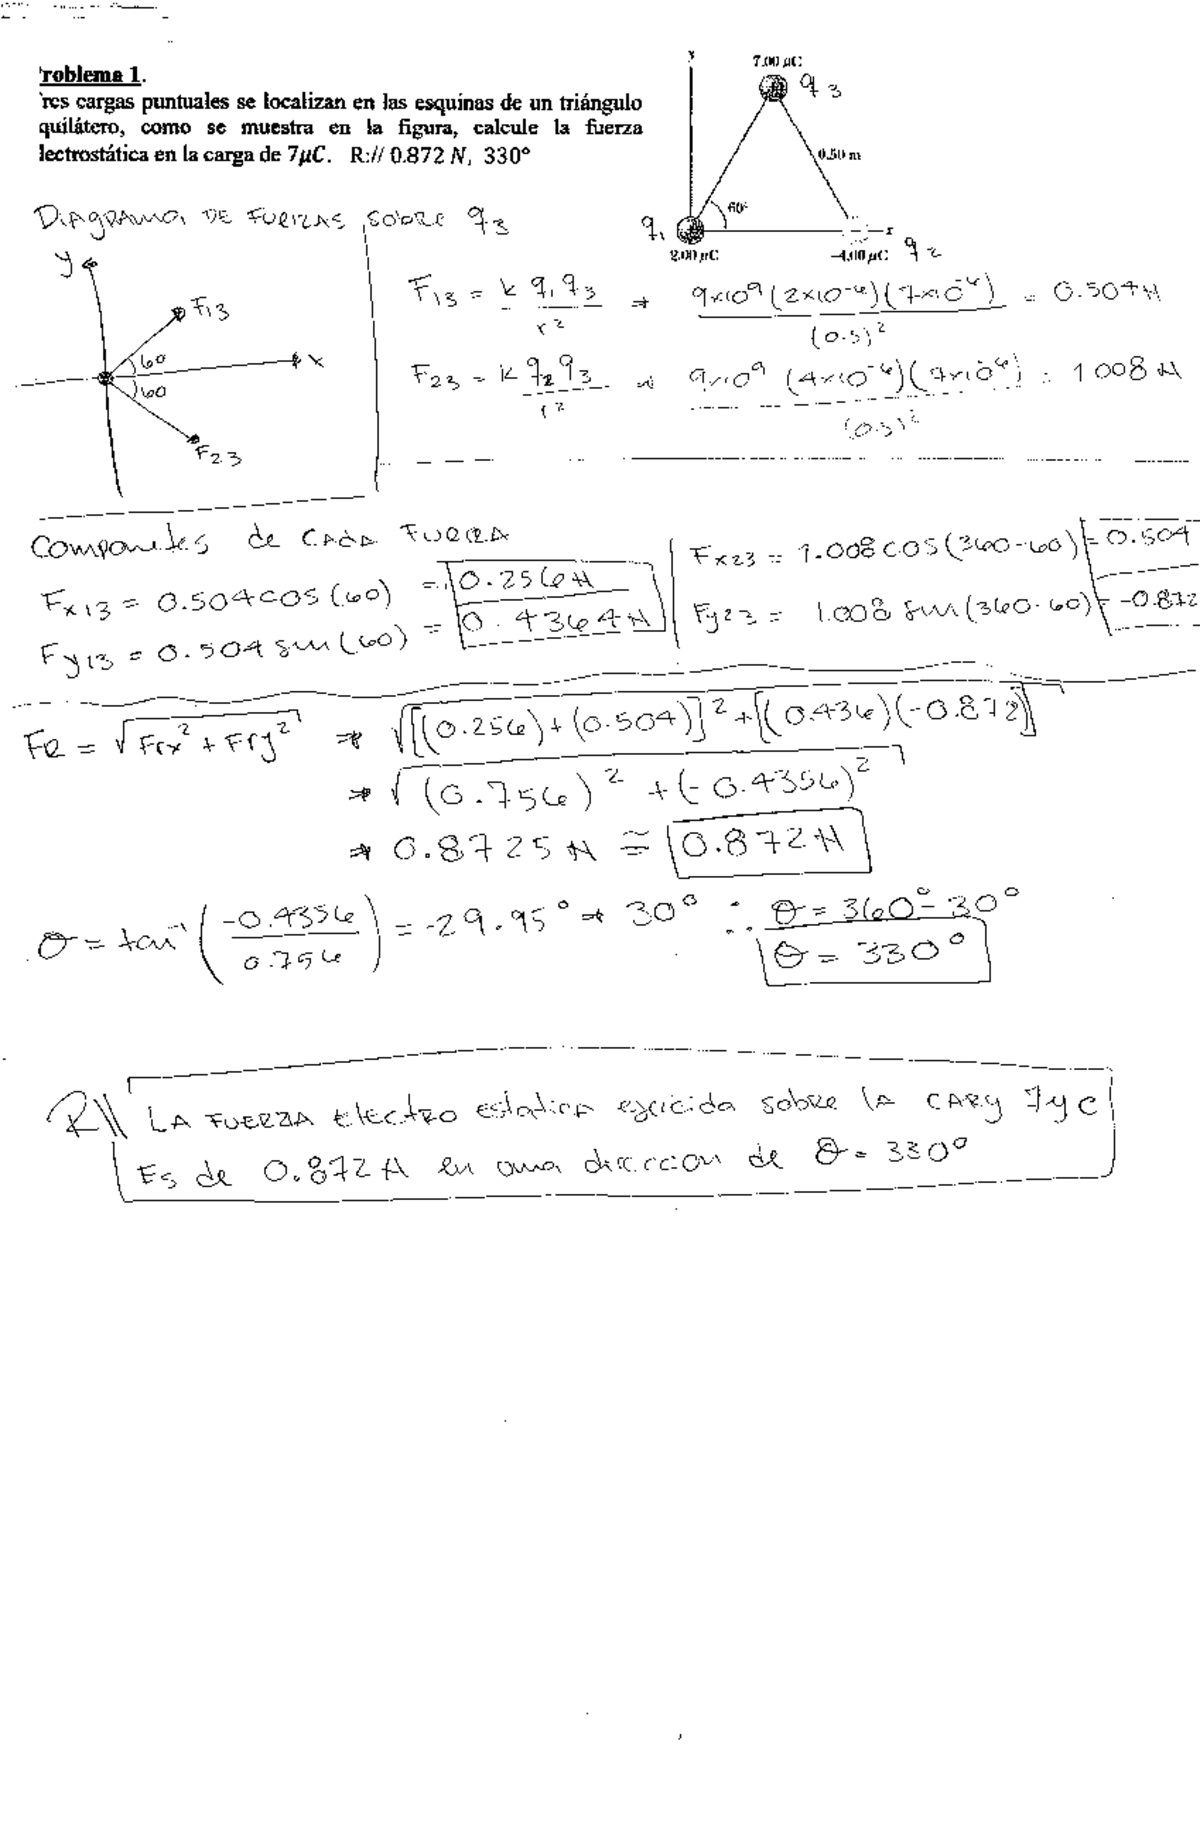 roblema 1.
res cargas puntuales se localizan en las esquinas de un triángulo
quilátero, como se muestra en la figura, calcule la fuerza
lectrostática en la carga de 7μC. R:// 0.872 N, 330°
y
7.00 μC
q3
0.50 m
60°
q1
x
2.00 μC
-4.00 μC
q2
DIAGRAMA DE FUERZAS sobre q3
y
F13
60
x
60
F23
F13 = k q1 q3 / r² ⇒ 9x10^9 (2x10^-6)(7x10^-6) / (0.5)² = 0.504 N
F23 = k q2 q3 / r² ⇒ 9x10^9 (4x10^-6)(7x10^-6) / (0.5)² = 1.008 N
Componetes de CADA FUERZA
Fx13 = 0.504 cos(60) = 0.256 N
Fy13 = 0.504 sen(60) = 0.4364 N
Fx23 = 1.008 cos(360-60) = 0.504
Fy23 = 1.008 sen(360-60) = -0.872
FR = √(Frx² + Fry²) ⇒ √([(0.256)+(0.504)]² + [(0.436)(-0.872)]
⇒ √((0.756)² + (-0.4356)²)
⇒ 0.8725 N ≅ 0.872 N
θ = tan⁻¹ (-0.4356 / 0.756) = -29.95° ⇒ 30° ∴ θ = 360° - 30°
θ = 330°
R\\ LA FUERZA Electro estatica ejercida sobre la CARG 7μC
Es de 0.872 N en una direccion de θ = 330°